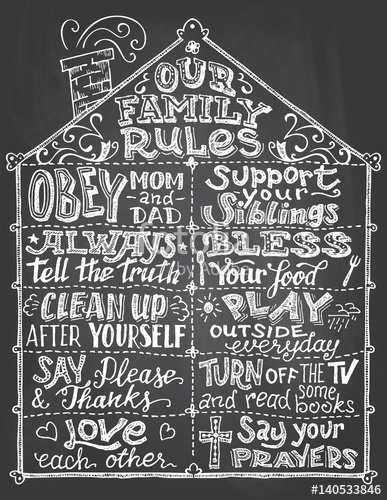 OUR
FAMILY
RULES
OBEY MOM
and
DAD
Support
your
Siblings
ALWAYS
tell the Truth
BLESS
Your food
CLEAN UP
AFTER YOURSELF
PLAY
OUTSIDE
everyday
SAY Please
& Thanks
TURN OFF THE TV
and read some
books
Love
each other
Say your
PRAYERS
fotolia
#140533846